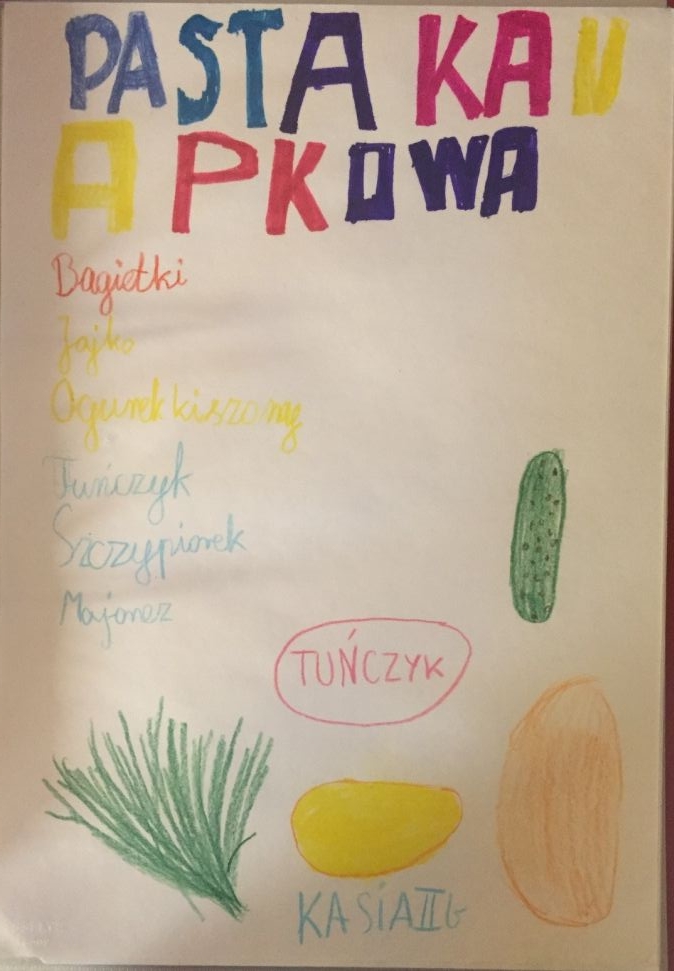 PASTA KAN
APKOWA
Bagietki
Jajko
Ogurek kiszony
Tuńczyk
Szczypiorek
Majonez
TUŃCZYK
KASIA II G